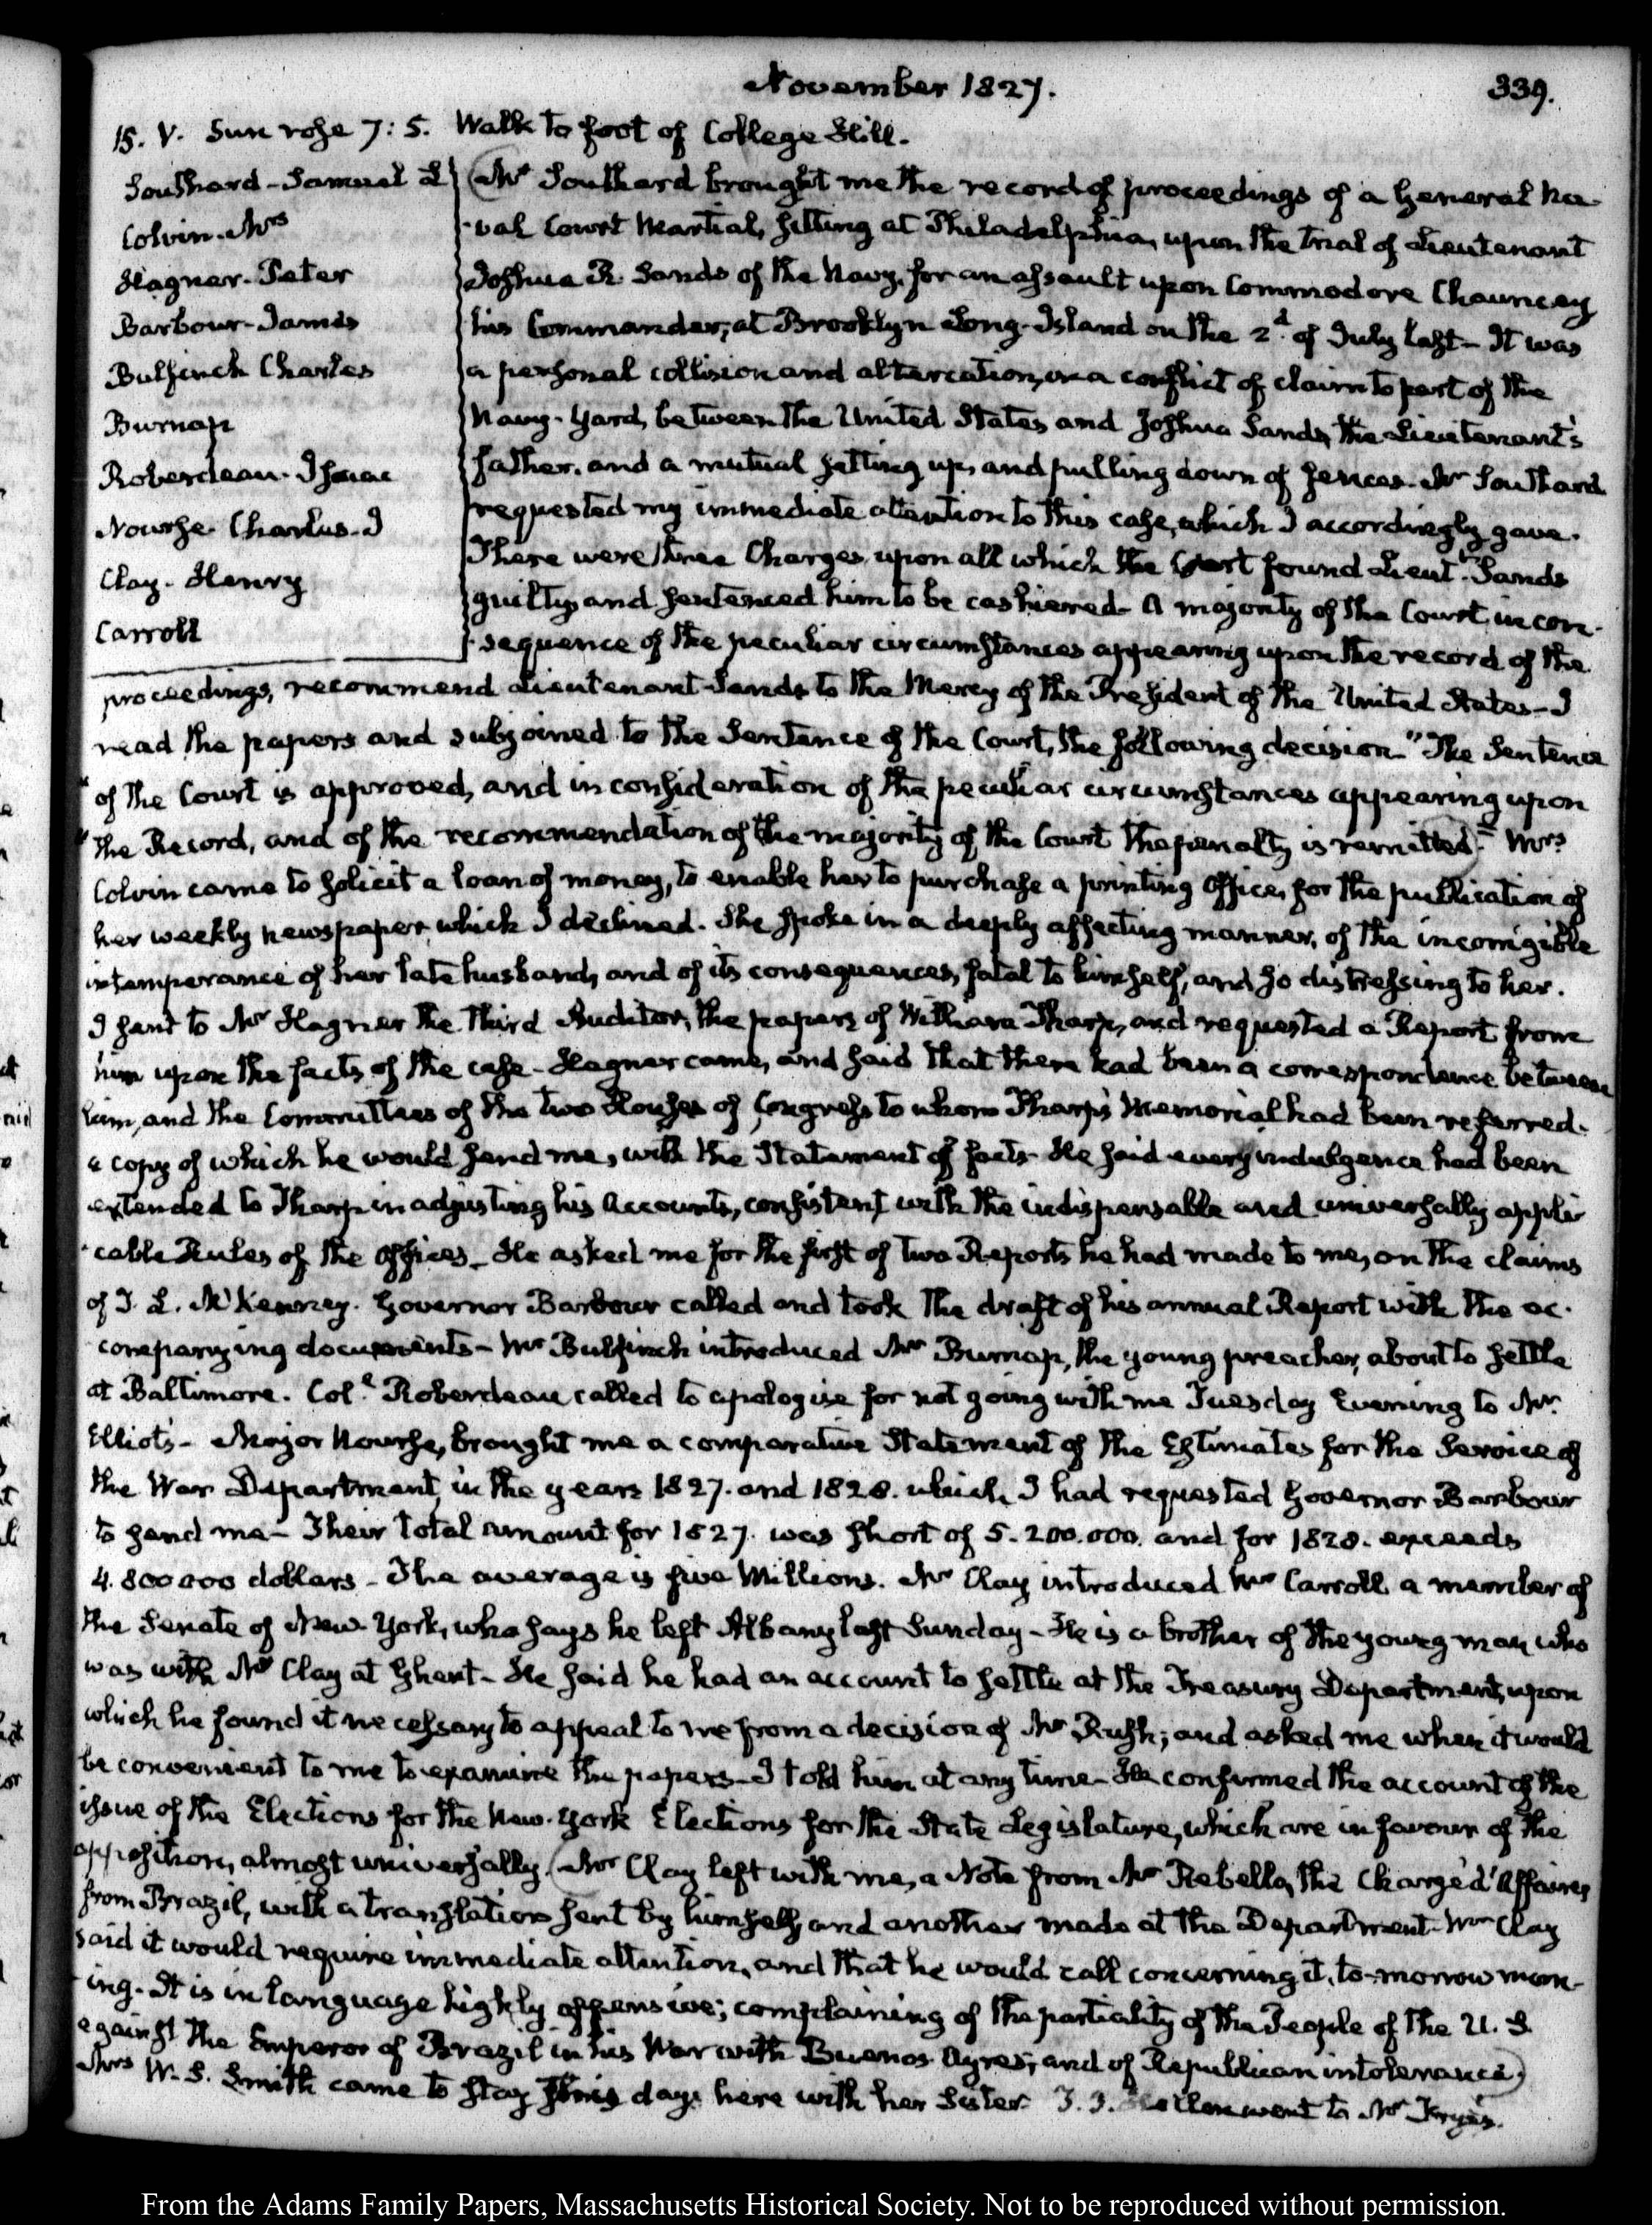 November 1827.
339.
15. V. Sun rose 7:5. Walk to foot of College Hill.
Southard-Samuel L
Colvin. Mrs
Hagner. Peter
Barbour-James
Bulfinch Charles
Burnap
Roberdeau. Isaac
Nourse Charles. J
Clay. Henry
Carroll
Mr Southard brought me the record of proceedings of a General Na-
-val Court Martial, sitting at Philadelphia, upon the trial of Lieutenant
Joshua R. Sands of the Navy, for an assault upon Commodore Chauncey
his Commander, at Brooklyn Long-Island on the 2d of July last- It was
a personal collision and altercation, on a conflict of claim to part of the
Navy-Yard, between the United States and Joshua Sands, the Lieutenant's
father, and a mutual setting up, and pulling down of fences. Mr Southard
requested my immediate attention to this case, which I accordingly gave.
There were three Charges, upon all which the Court found Lieutt Sands
guilty, and sentenced him to be cashiered- A majority of the Court, in con-
-sequence of the peculiar circumstances appearing upon the record of the
proceedings, recommend Lieutenant Sands to the Mercy of the President of the United States-I
read the papers and subjoined to the Sentence of the Court, the following decision "The Sentence
" of the Court is approved, and in consideration of the peculiar circumstances appearing upon
" the Record, and of the recommendation of the majority of the Court the penalty is remitted." Mrs
Colvin came to solicit a loan of money, to enable her to purchase a printing Office, for the publication of
her weekly newspaper, which I declined. She spoke in a deeply affecting manner, of the incorrigible
intemperance of her late husband, and of its consequences, fatal to himself, and so distressing to her.
I sent to Mr Hagner the Third Auditor, the papers of William Tharp, and requested a Report from
him upon the facts of the case- Hagner came, and said that there had been a correspondence between
him, and the Committees of the two Houses of Congress to whom Tharp's Memorial had been referred.
a copy of which he would send me, with the Statement of facts- He said every indulgence had been
extended to Tharp in adjusting his Accounts, consistent with the indispensable and universally appli-
-cable Rules of the Offices- He asked me for the first of two Reports he had made to me, on the claims
of J. L. McKenney. Governor Barbour called and took the draft of his annual Report with the ac-
companying documents- Mr Bulfinch introduced Mr Burnap, the young preacher, about to settle
at Baltimore. Coll Roberdeau called to apologise for not going with me Tuesday Evening to Mr
Elliot's- Major Nourse, brought me a comparative Statement of the Estimates for the Service of
the War Department, in the years 1827. and 1828. which I had requested Governor Barbour
to send me- Their total amount for 1827. was short of 5.200.000. and for 1828. exceeds
4.800000 dollars- The average is five Millions. Mr Clay introduced Mr Carroll a member of
the Senate of New-York, who says he left Albany last Sunday- He is a brother of the young man who
was with Mr Clay at Ghent- He said he had an account to settle at the Treasury Department, upon
which he found it necessary to appeal to me from a decision of Mr Rush; and asked me when it would
be convenient to me to examine the papers- I told him at any time- He confirmed the account of the
issue of the Elections for the New-York Elections for the State Legislature, which are in favour of the
opposition, almost universally. (Mr Clay left with me, a Note from Mr Rebello, the Chargé d'Affaires
from Brazil, with a translation sent by himself, and another made at the Department- Mr Clay
said it would require immediate attention, and that he would call concerning it, to-morrow morn-
-ing. It is in language highly offensive; complaining of the partiality of the People of the U. S.
against the Emperor of Brazil in his War with Buenos Ayres; and of Republican intolerance.)
Mrs W. S. Smith came to stay some days here with her Sister. went to Mr
From the Adams Family Papers, Massachusetts Historical Society. Not to be reproduced without permission.